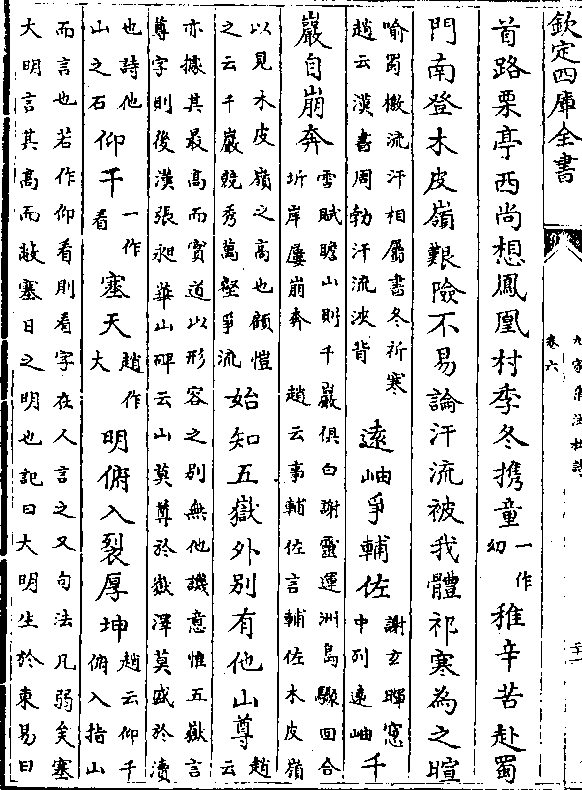 欽定四庫全書
九家集注杜詩
卷六
首路栗亭西尚想鳳凰村季冬攜童一作幼稚辛苦赴蜀
門南登木皮嶺艱險不易論汗流被我體祁寒為之暄
喻蜀檄流汗相屬書冬祈寒
趙云漢書周勃汗流浹背
遠岫爭輔佐謝玄暉窻中列遠岫千
巖自崩奔
雪賦瞻山則千巖俱白謝靈運洲島驟回合
圻岸屢崩奔 趙云爭輔佐言輔佐木皮嶺
以見木皮嶺之高也顧愷
之云千巖競秀萬壑爭流
始知五嶽外別有他山尊趙云
亦據其最高而實道以形容之別無他譏意惟五嶽言
尊字則後漢張昶華山碑云山莫尊於嶽澤莫盛於瀆
也詩他
山之石
仰干一作看塞天趙作大明俯入裂厚坤趙云仰干俯入指山
而言也若作仰看則看字在人言之又句法凡弱矣塞
大明言其高而敝塞日之明也記曰大明生於東易曰